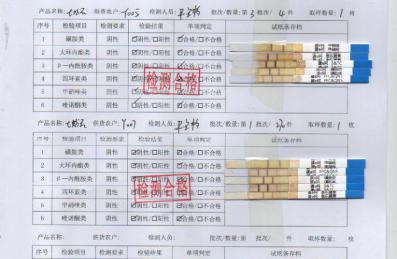 产品名称: 供货农户: Y005 检测人员: 批次/数量:第 3 批次/ 件 取样数量: 1 枚
序号 检验项目 检测要求 检验结果 单项判定 试纸条存档
1 磺胺类 阴性 ☑阴性/☐阳性 ☑合格/☐不合格
2 大环内酯类 阴性 ☑阴性/☐阳性 ☑合格/☐不合格
3 β-内酰胺类 阴性 ☑阴性/☐阳性 ☑合格/☐不合格
4 四环素类 阴性 ☑阴性/☐阳性 ☑合格/☐不合格
5 甲硝唑类 阴性 ☑阴性/☐阳性 ☑合格/☐不合格
6 喹诺酮类 阴性 ☑阴性/☐阳性 ☑合格/☐不合格
检测合格
产品名称: 供货农户: Y007 检测人员: 批次/数量:第 1 批次/ 件 取样数量: 1 枚
序号 检验项目 检测要求 检验结果 单项判定 试纸条存档
1 磺胺类 阴性 ☑阴性/☐阳性 ☑合格/☐不合格
2 大环内酯类 阴性 ☑阴性/☐阳性 ☑合格/☐不合格
3 β-内酰胺类 阴性 ☑阴性/☐阳性 ☑合格/☐不合格
4 四环素类 阴性 ☑阴性/☐阳性 ☑合格/☐不合格
5 甲硝唑类 阴性 ☑阴性/☐阳性 ☑合格/☐不合格
6 喹诺酮类 阴性 ☑阴性/☐阳性 ☑合格/☐不合格
检测合格
产品名称: 供货农户: 检测人员: 批次/数量:第 批次/ 件 取样数量: 枚
序号 检验项目 检测要求 检验结果 单项判定 试纸条存档